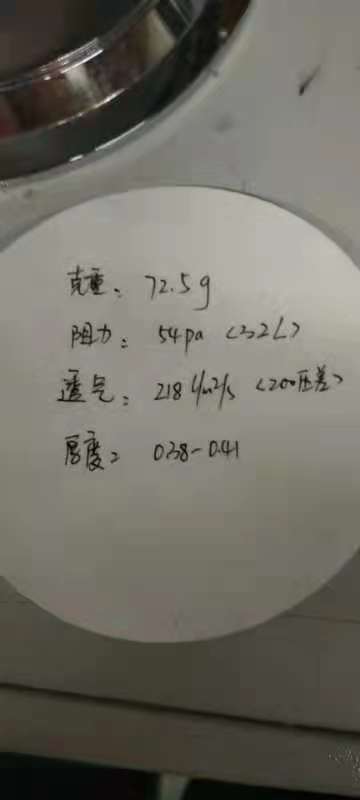 克重：72.5g
阻力：54pa <32L>
透气：218 L/m²/s <200压差>
厚度：0.38-0.41